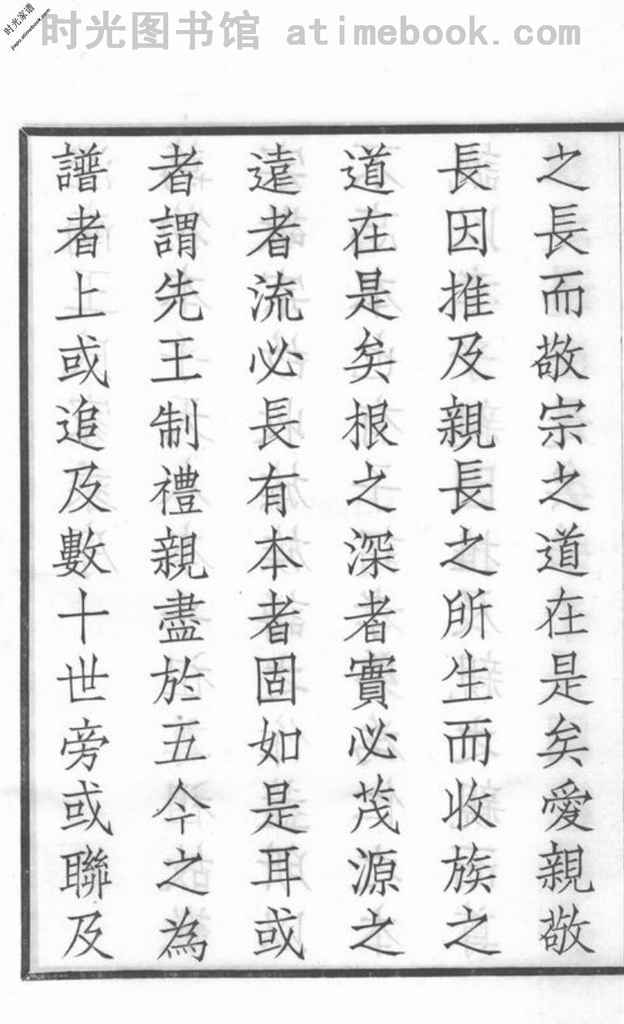 时光图书馆 atimebook.com
时光家谱
之長而敬宗之道在是矣愛親敬
長因推及親長之所生而收族之
道在是矣根之深者實必茂源之
遠者流必長有本者固如是耳或
者謂先王制禮親盡於五今之為
譜者上或追及數十世旁或聯及